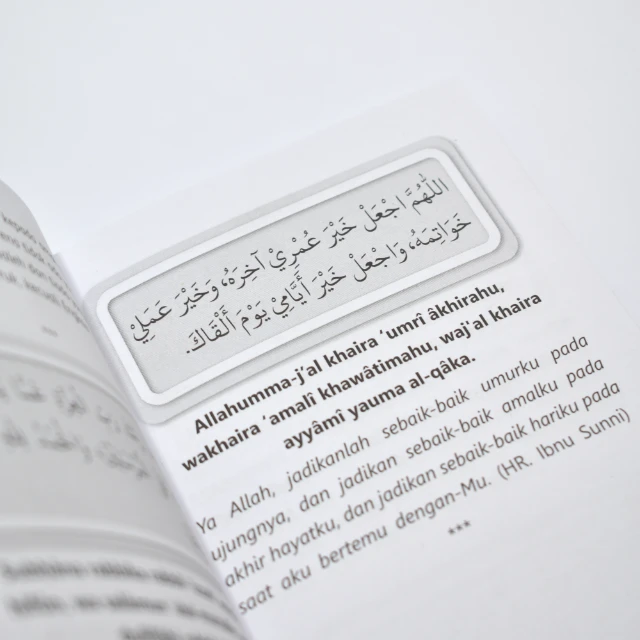 اللّٰهُمَّ اجْعَلْ خَيْرَ عُمْرِيْ آخِرَهُ وَخَيْرَ عَمَلِيْ
خَوَاتِمَهُ وَاجْعَلْ خَيْرَ أَيَّامِيْ يَوْمَ أَلْقَاكَ.
Allahumma-j’al khaira ’umrî âkhirahu,
wakhaira ’amalî khawâtimahu, waj’al khaira
ayyâmî yauma al-qâka.
Ya Allah, jadikanlah sebaik-baik umurku pada
ujungnya, dan jadikan sebaik-baik amalku pada
akhir hayatku, dan jadikan sebaik-baik hariku pada
saat aku bertemu dengan-Mu. (HR. Ibnu Sunni)
***